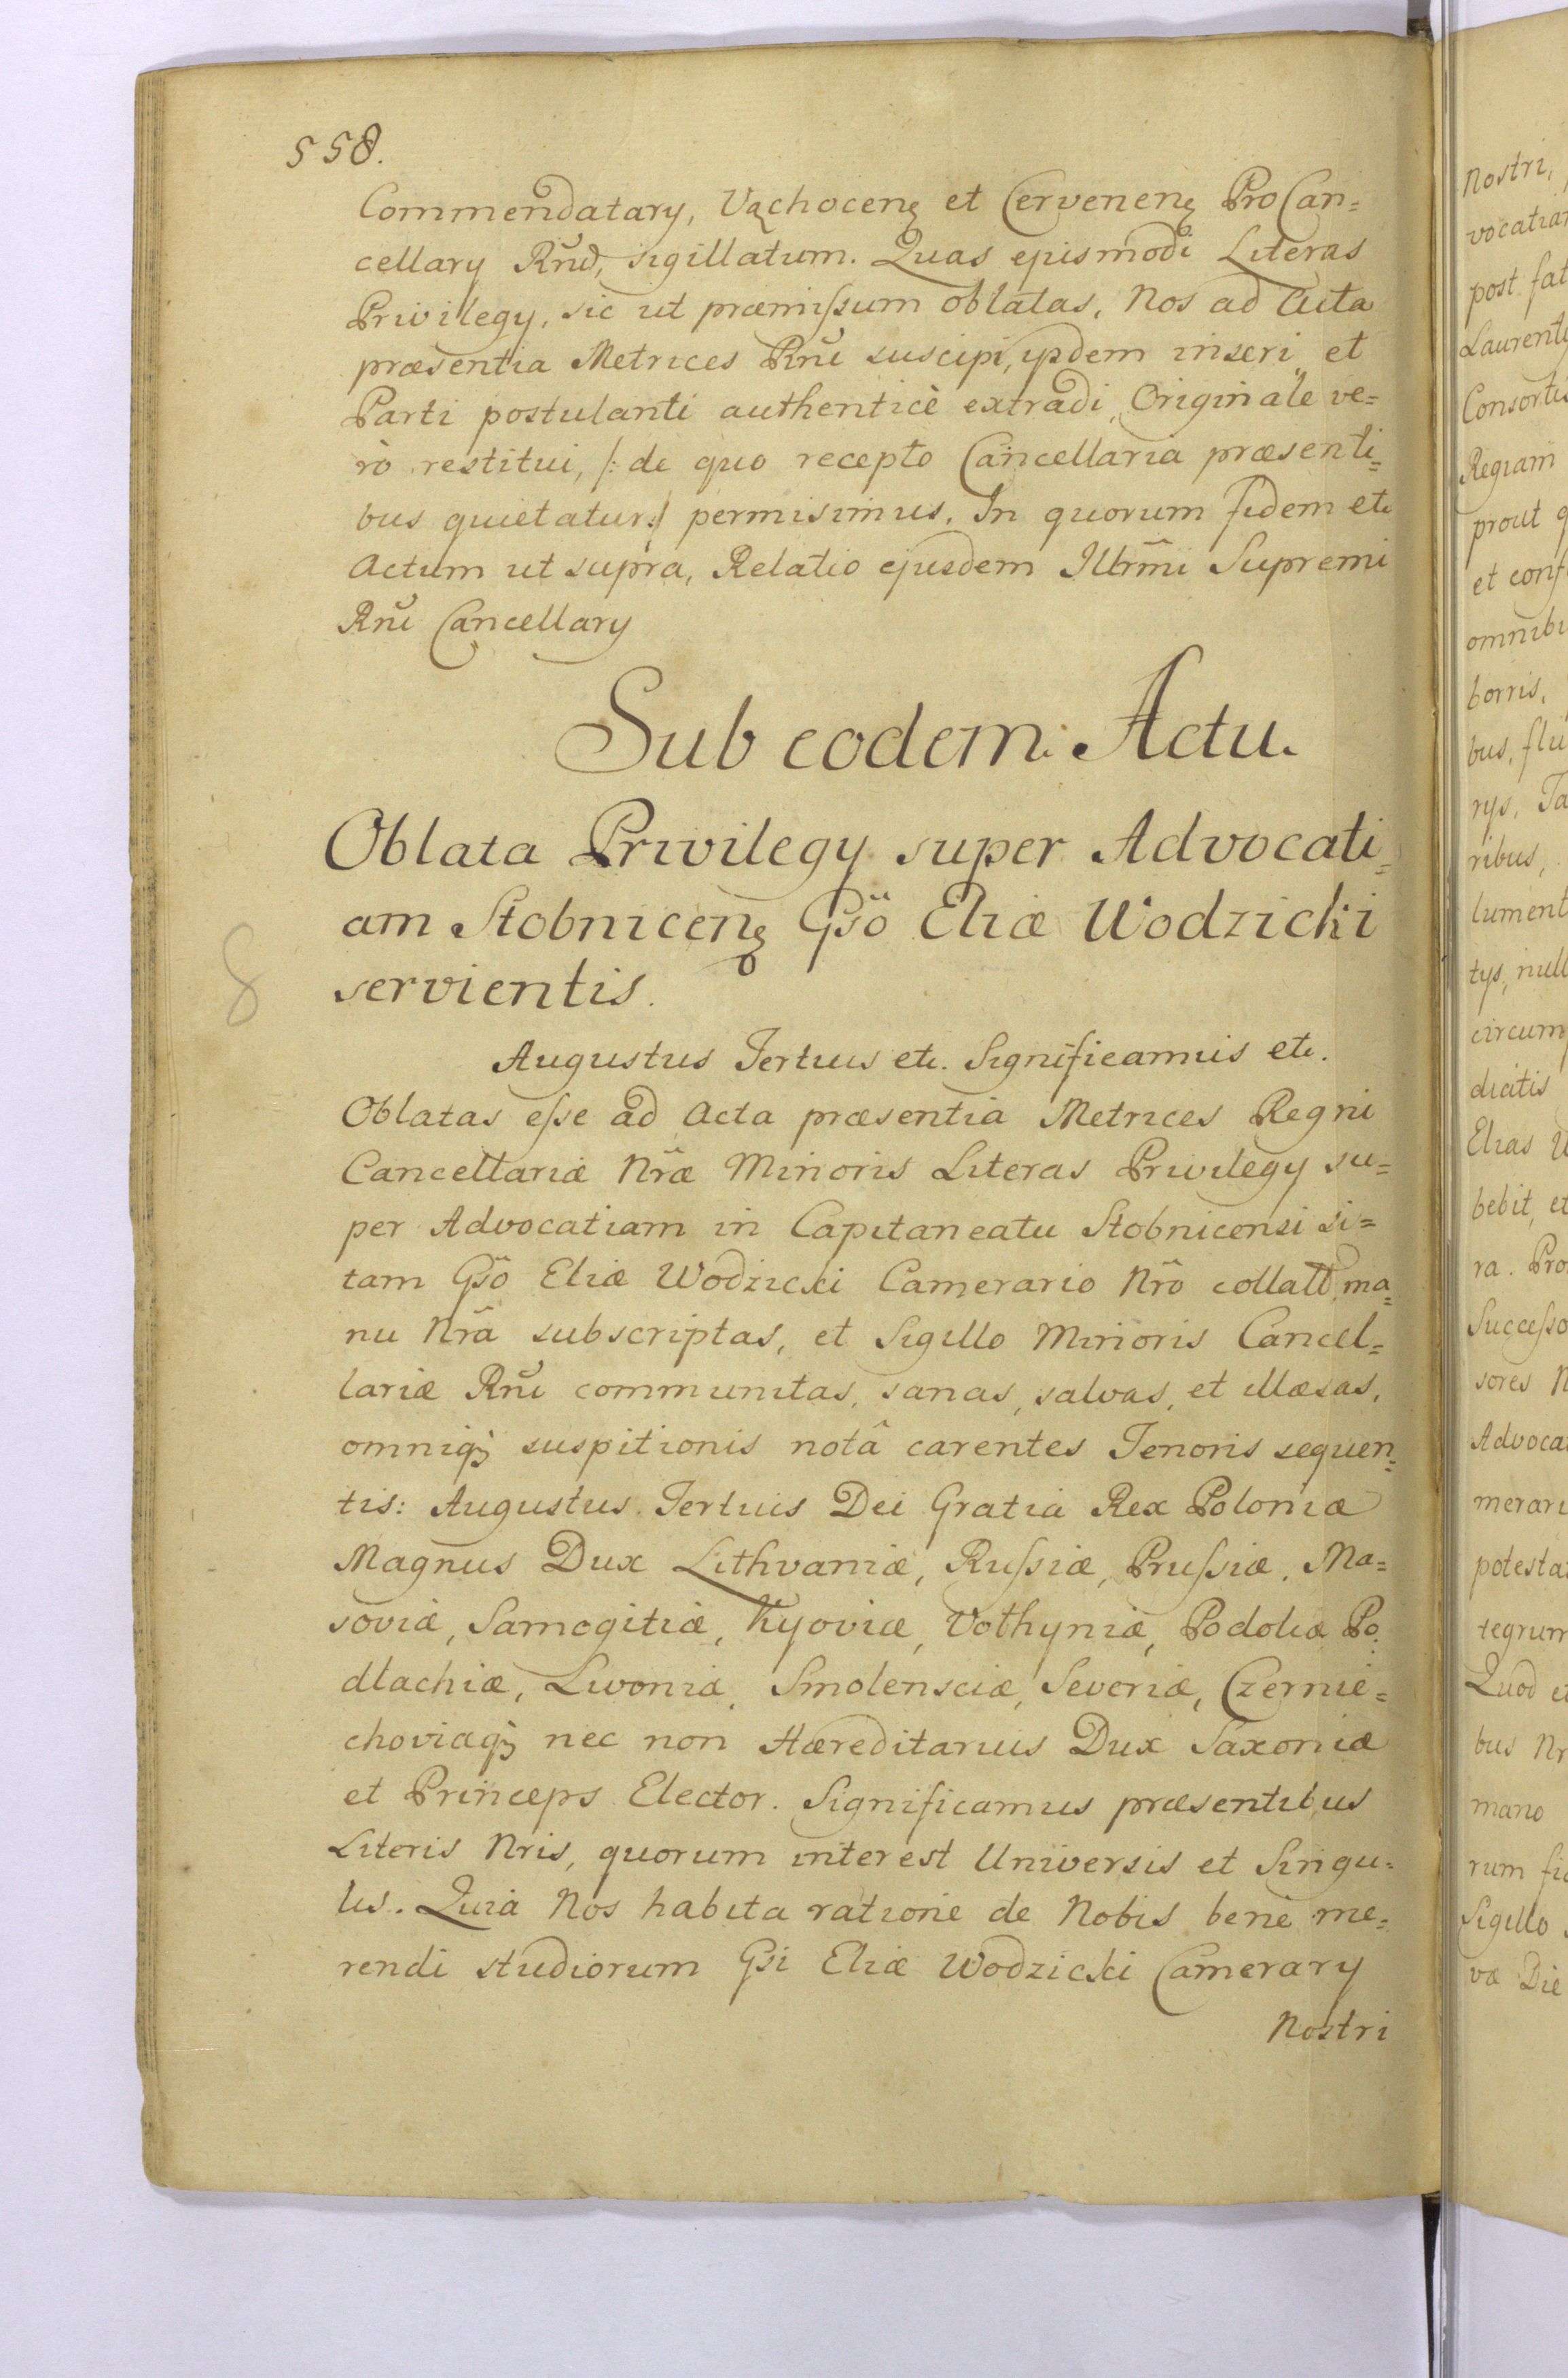 558.
Commendatary, Vąchocenȩ et Cervenenȩ ProCan=
cellary Rnĩd, sigillatum. Quas ejusmodi Literas
Privilegy, sic ut præmissum oblatas, Nos ad Acta
præsentia Metrices Rnĩ suscipi, ijsdem inseri, et
Parti postulanti authenticè extradi, Originale ve=
rò restitui, /: de quo recepto Cancellaria præsenti=
bus quietatur :/ permisimus. In quorum fidem etc
Actum ut supra, Relatio ejusdem Illrm̃i Supremi
Rnĩ Cancellary
Sub eodem Actu.
Oblata Privilegy super Advocati=
am Stobnicenȩ Gsõ Eliæ Wodzicki
servientis.
8
Augustus Tertius etc. Significamus etc.
Oblatas esse ad Acta præsentia Metrices Regni
Cancellariæ Nræ̃ Minoris Literas Privilegy su=
per Advocatiam in Capitaneatu Stobnicensi si=
tam Gsõ Eliæ Wodzicki Camerario Nrõ collatt, ma=
nu Nrã subscriptas, et Sigillo Minoris Cancel=
lariæ Rnĩ communitas, sanas, salvas, et illæsas,
omniq; suspitionis notâ carentes Tenoris sequen=
tis: Augustus Tertius Dei Gratia Rex Poloniæ
Magnus Dux Lithvaniæ, Russiæ, Prussiæ, Ma=
soviæ, Samogitiæ, Kyoviæ, Volhyniæ, Podoliæ Po=
dlachiæ, Livoniæ, Smolensciæ, Severiæ, Czernie=
choviæq; nec non Hæreditarius Dux Saxoniæ
et Princeps Elector. Significamus præsentibus
Literis Nris, quorum interest Universis et Singu=
lis. Quia Nos habita ratione de Nobis bene me=
rendi studiorum Gsi Eliæ Wodzicki Camerary
Nostri
nostri,
post fat
Consortis
Regiam
prout q
et conf
borris,
bus, flu
rys, Ta
ribus,
lument
tys, null
circum
dictis
Elias W
bebit, et
ra. Pro
Successo
sores N
Advoca
merari
potesta
tegrum
Quod et
bus Nr
mano
rum fid
Sigillo
væ Die